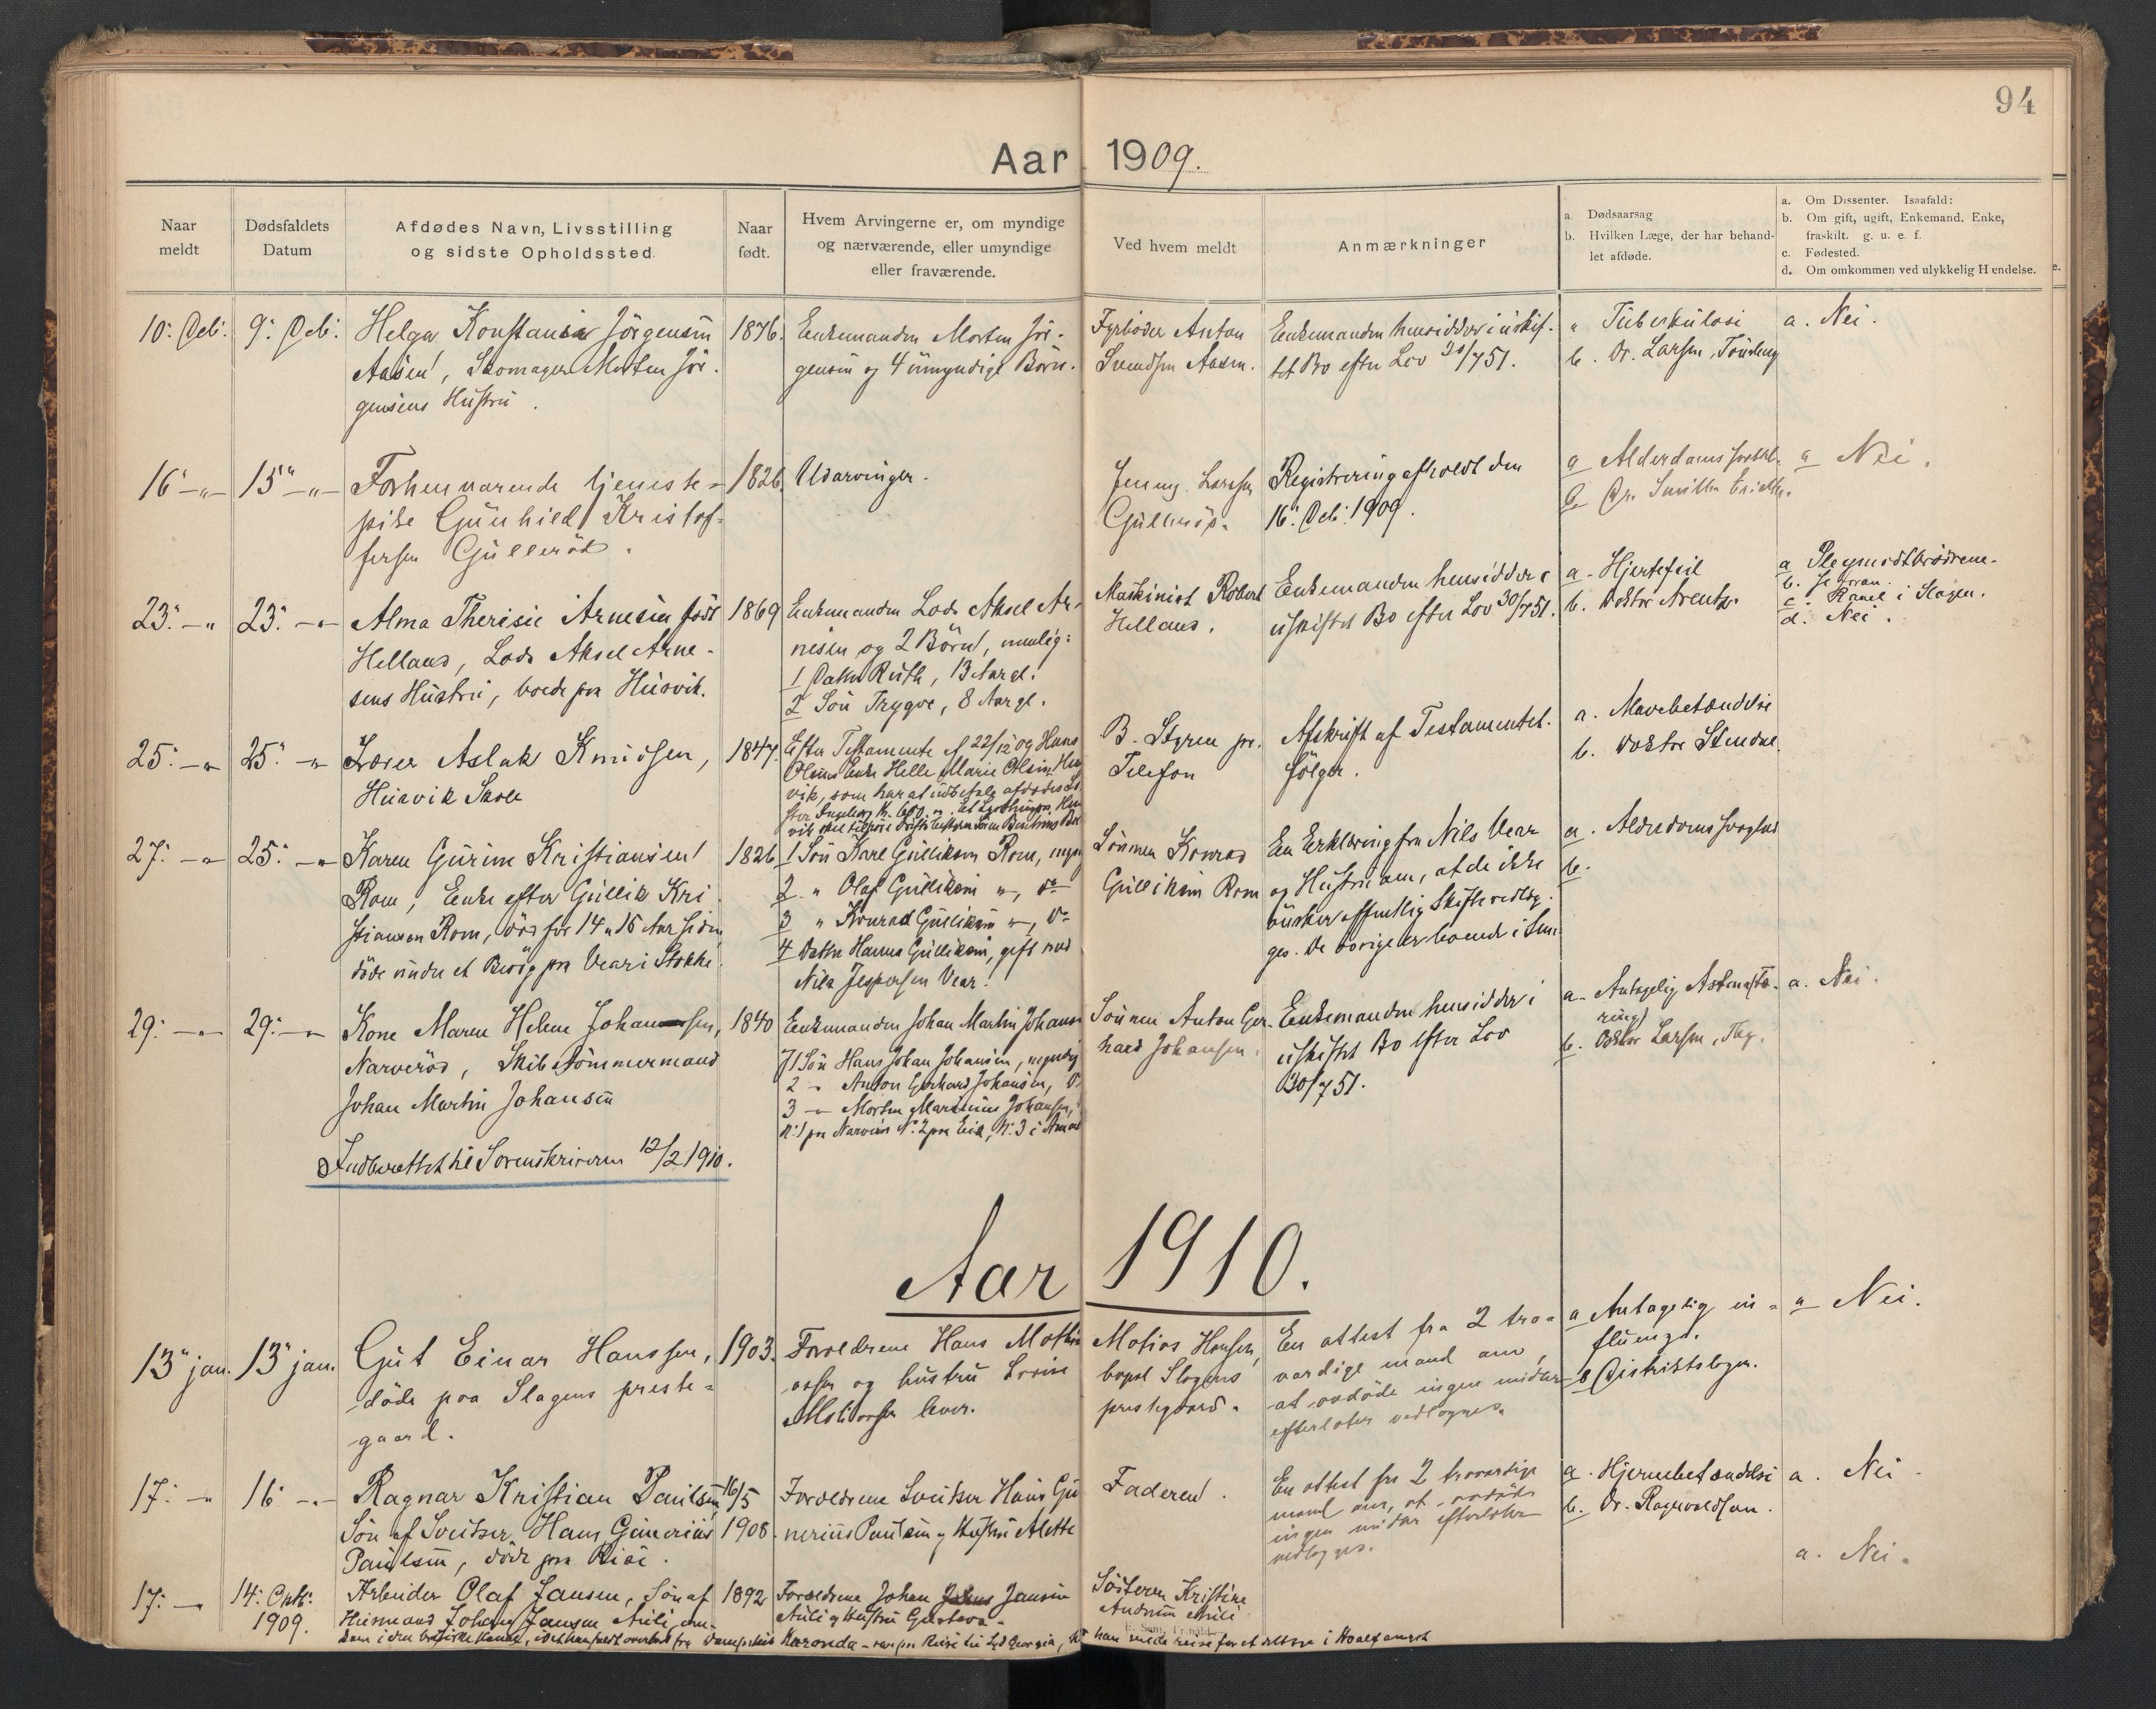 94
Aar 1909.
Naar
meldt
Dødsfaldets
Datum
Afdødes Navn, Livsstilling
og sidste Opholdssted.
Naar
født.
Hvem Arvingerne er, om myndige
og nærværende, eller umyndige
eller fraværende.
Ved hvem meldt
Anmærkninger
a. Dødsaarsag
b. Hvilken Læge, der har behand-
let afdøde.
a. Om Dissenter. Isaafald:
b. Om gift, ugift, Enkemand, Enke,
fraskilt. g. u. e. f.
c. Fødested.
d. Om omkommen ved ulykkelig Hendelse.
10: Deb: 9: Deb: Helga Konstance Jörgensen 1876.
Aasen, Skomager Morten Jör-
gensens Hustru.
Enkemanden Morten Jör-
gensen og 4 umyndige Börn.
Fyrböder Anton
Svendsen Aasen.
Enkemanden hensidder i uskif-
tet Bo efter Lov 30/7 51.
" Tüberkülose
b. Dr. Larsen, Tönsberg
a. Nei.
16 -"- 15 -"- Forhenværende tjeneste- 1826.
pike Günhild Kristof-
fersen Gülleröd.
Udarvinger.
Jenny Larsen
Registrering afholdt den
16: Deb: 1909.
a Alderdoms
a Nei.
23: -"- 23: -"- Alma Therisie Arnesen född 1869
Helland, Lods Aksel Arne-
sens Hustru, boede paa Husvik.
Enkemanden Lods Aksel Ar-
nesen og 2 Börn, nemlig:
1 Datter Ruth, 13 Aar gl.
2 Sön Trygve, 8 Aar gl.
Maskinist Robert
Helland.
Enkemanden hensidder i
uskiftet Bo efter Lov 30/7 51.
a. Hjertefeil
b. Doktor Arentz.
a
b. g
c. i Slagen.
d. Nei.
25: -"- 25: -"- Lærer Aslak Knudsen, 1847.
Husvik Skole
Efter Testamente af 22/12 09 Hans
Olsens Enke Helle Marie Olsen, Hus
vik, som har at udbetale afdödes Sö
ster
B. Styren pr.
Telefon
Afskrift af Testamentet
fölger.
a. Mavebetændelse
b. Doktor
27: -"- 25: -"- Karen Gurine Kristiansen 1826
Rom, Enke efter Gullik Kri-
stiansen Rom, död for 14 a 15 Aar siden,
döde under et Besög paa Vear i Stokke.
1 Sön Karl Gulliksen Rom, myn
2 " Olaf Gulliksen ", do
3 " Konrad Gulliksen ", do
4 Datter Hanna Gulliksen, gift med
Nils Jespersen Vear.
Sönnen Konrad
Gulliksen Rom
En Erklæring fra Nils Vear
og Hustru om, at de ikke
önsker offentlig Skifte vedlæg-
ges. De övrige er boende i Sem.
a. Alderdoms svaghed
b.
29: -"- 29: -"- Kone Maren Helene Johansen, 1840
Narveröd, Skibstömmermand
Johan Martin Johansen
Enkemanden Johan Martin Johans
1 Sön Hans Johan Johansen, myndig
2 - Anton Gerhard Johansen, do
3 - Morten Marinius Johansen,
N: 1 paa Narveröd N: 2 paa Eik, N: 3 i Amer
Sönnen Anton Ger-
hard Johansen.
Enkemanden hensidder i
uskiftet Bo efter Lov
30/7 51.
a. Antagelig
b. Doktor Larsen, Tbg.
a. Nei.
Indberettet til Sorenskriveren 12/2 1910.
Aar 1910.
13" jan. 13" jan. Gut Einar Hanssen, 1903.
döde paa Slagens preste-
gaard.
Forældrene Hans Mathi
assen og hustru Lovise
lever.
Matias Hansen,
bopæl Slagens
prestegaard.
En attest fra 2 tro-
værdige mænd om,
at avdöde ingen midler
efterlater vedlægges.
a Antagelig in-
fluenza.
b Distriktslægen.
a Nei.
17: -"- 16 -"- Ragnar Kristian Paulsen, 16/5
Sön af Sveitser Hans Gunerius 1908.
Paulsen, döde paa Risö.
Forældrene Sveitser Hans Gu
nerius Paulsen og Hustru Alette
Faderen.
En attest fra 2 troværdige
mænd om, at avdöde
ingen midler efterlater
vedlægges.
a. Hjernebetændelse
b. Dr. Ragnvaldsen.
a. Nei
17: -"- 14: Oktb: Arbeider Olaf Jansen, Sön af 1892
1909. Husmand Johan Jansen Auli, om-
Forældrene Johan Jansen
Auli og Hustru Gustava.
Sösteren Kristine
Auli
a. Nei.
kom i den engelske Kanal, idet han faldt overbord fra Dampskib Karonda - var paa Reise til Syd Georgia, hvor han vilde reise for at deltage i Hvalfangst